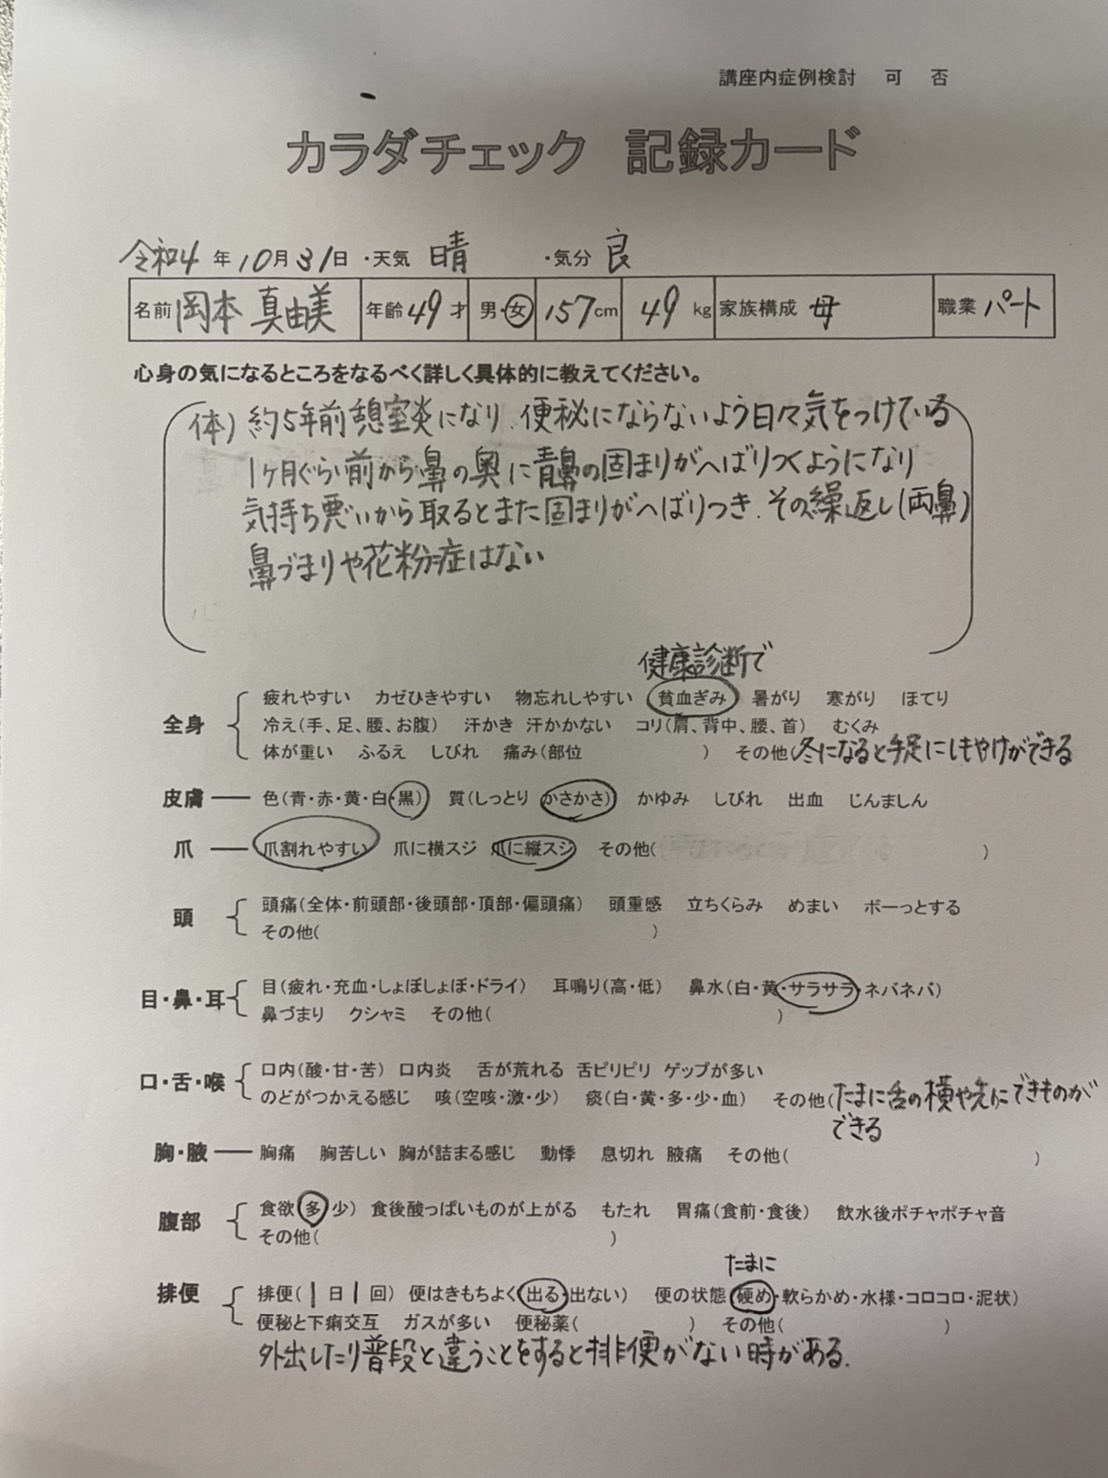 講座内症例検討　可　否
カラダチェック　記録カード
令和4 年 10月 31日 ・天気 晴 ・気分 良
名前 岡本 真由美 年齢 49 才 男・女 157cm 49 kg 家族構成 母 職業 パート
心身の気になるところをなるべく詳しく具体的に教えてください。
体）約5年前憩室炎になり、便秘にならないよう日々気をつけている
1ヶ月ぐらい前から鼻の奥に青鼻の固まりがへばりつくようになり
気持ち悪いから取るとまた固まりがへばりつき、その繰返し（両鼻）
鼻づまりや花粉症はない
健康診断で
全身 疲れやすい カゼひきやすい 物忘れしやすい 貧血ぎみ 暑がり 寒がり ほてり
冷え（手、足、腰、お腹） 汗かき 汗かかない コリ（肩、背中、腰、首） むくみ
体が重い ふるえ しびれ 痛み（部位 ） その他 冬になると手足にしもやけができる
皮膚 ― 色（青・赤・黄・白・黒） 質（しっとり かさかさ） かゆみ しびれ 出血 じんましん
爪 ― 爪割れやすい 爪に横スジ 爪に縦スジ その他（ ）
頭 頭痛（全体・前頭部・後頭部・頂部・偏頭痛） 頭重感 立ちくらみ めまい ボーっとする
その他（ ）
目・鼻・耳 目（疲れ・充血・しょぼしょぼ・ドライ） 耳鳴り（高・低） 鼻水（白・黄・サラサラ・ネバネバ）
鼻づまり クシャミ その他（ ）
口・舌・喉 口内（酸・甘・苦） 口内炎 舌が荒れる 舌ピリピリ ゲップが多い
のどがつかえる感じ 咳（空咳・激・少） 痰（白・黄・多・少・血） その他（たまに舌の横や先にできものが
できる
胸・腋 ― 胸痛 胸苦しい 胸が詰まる感じ 動悸 息切れ 腋痛 その他（ ）
腹部 食欲 多 少） 食後酸っぱいものが上がる もたれ 胃痛（食前・食後） 飲水後ポチャポチャ音
その他（ ）
たまに
排便 排便（1 日 1 回） 便はきもちよく（出る・出ない） 便の状態（硬め・軟らかめ・水様・コロコロ・泥状）
便秘と下痢交互 ガスが多い 便秘薬（ ） その他（ ）
外出したり普段と違うことをすると排便がない時がある。